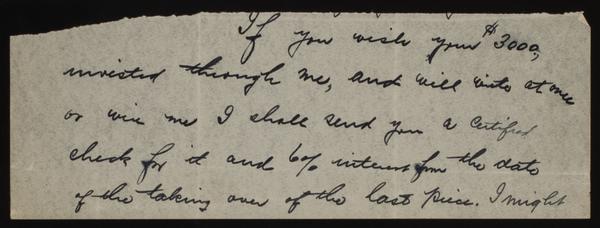 If you wish your $3000,
invested through me, and will write at once
or wire me I shall send you a certified
check for it and 6% interest from the date
of the taking over of the last piece. I might